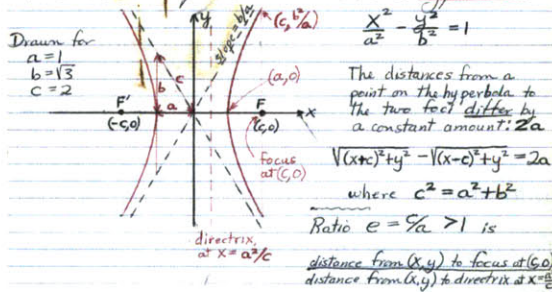 Drawn for
a = 1
b = √3
c = 2
y
(c, b²/a)
slope = b/a
c
b
a
(a,0)
F'
(-c,0)
F
(c,0)
x
focus
at (c,0)
directrix,
at x = a²/c
x²/a² - y²/b² = 1
The distances from a
point on the hyperbola to
the two foci differ by
a constant amount: 2a
√(x+c)²+y² - √(x-c)²+y² = 2a
where c² = a² + b²
Ratio e = c/a > 1 is
distance from (x,y) to focus at (c,0)
distance from (x,y) to directrix at x = a²/c